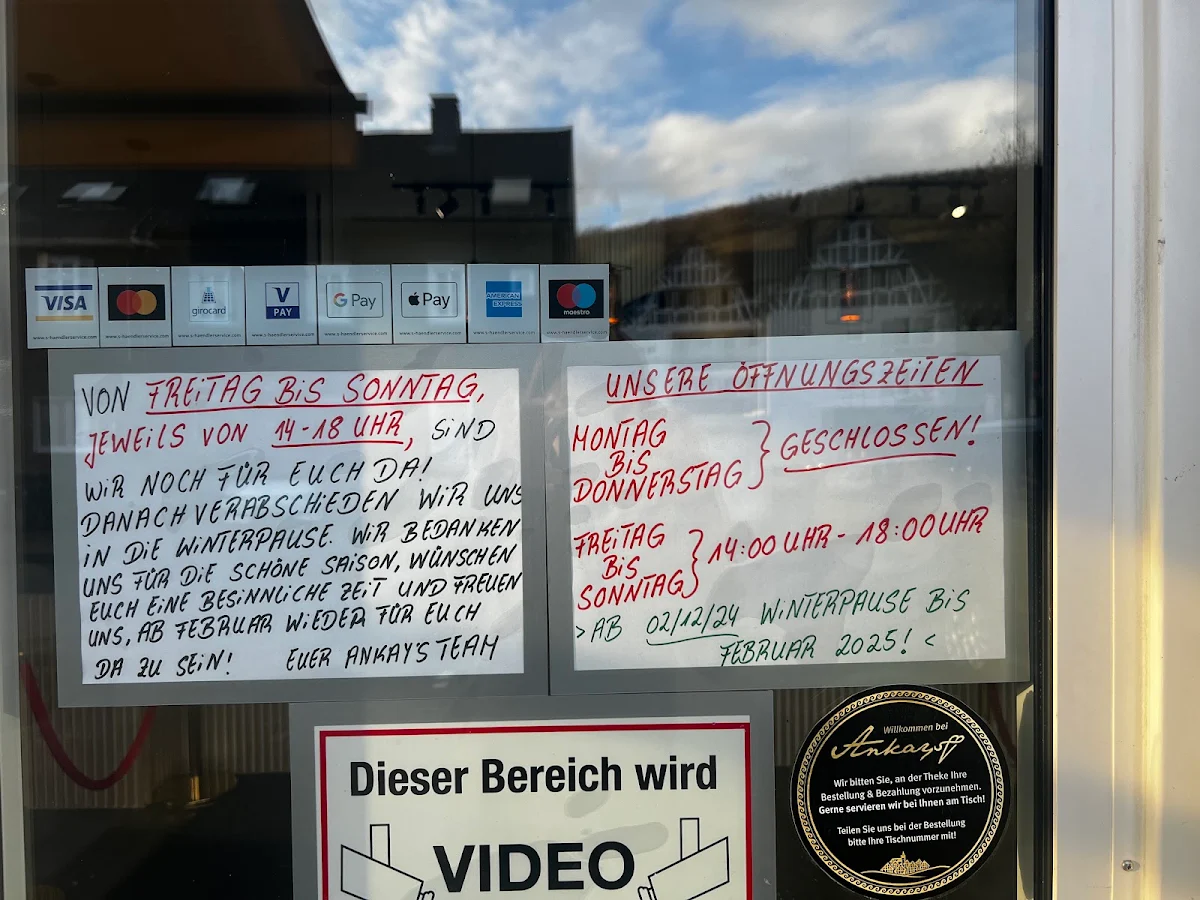 VISA
girocard
V
PAY
G Pay
Pay
AMERICAN
EXPRESS
maestro
www.s-haendlerservice.com
www.s-haendlerservice.com
www.s-haendlerservice.com
www.s-haendlerservice.com
www.s-haendlerservice.com
www.s-haendlerservice.com
www.s-haendlerservice.com
www.s-haendlerservice.com
VON FREITAG BIS SONNTAG,
JEWEILS VON 14-18 UHR, SIND
WIR NOCH FÜR EUCH DA!
DANACH VERABSCHIEDEN WIR UNS
IN DIE WINTERPAUSE. WIR BEDANKEN
UNS FÜR DIE SCHÖNE SAISON, WÜNSCHEN
EUCH EINE BESINNLICHE ZEIT UND FREUEN
UNS, AB FEBRUAR WIEDER FÜR EUCH
DA ZU SEIN! EUER ANKAY'S TEAM
UNSERE ÖFFNUNGSZEITEN
MONTAG
BIS
DONNERSTAG } GESCHLOSSEN!
FREITAG
BIS
SONNTAG } 14:00 UHR - 18:00 UHR
> AB 02/12/24 WINTERPAUSE BIS
FEBRUAR 2025! <
Dieser Bereich wird
VIDEO
Willkommen bei
Ankay's
Wir bitten Sie, an der Theke Ihre
Bestellung & Bezahlung vorzunehmen.
Gerne servieren wir bei Ihnen am Tisch!
Teilen Sie uns bei der Bestellung
bitte Ihre Tischnummer mit!